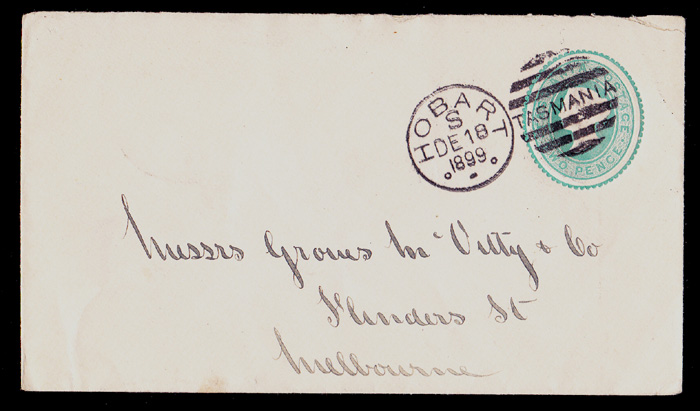 HOBART
S
DE 18
1899
TASMANIA
POSTAGE
TWO PENCE
Messrs Groves Mc Vitty & Co
Flinders St
Melbourne